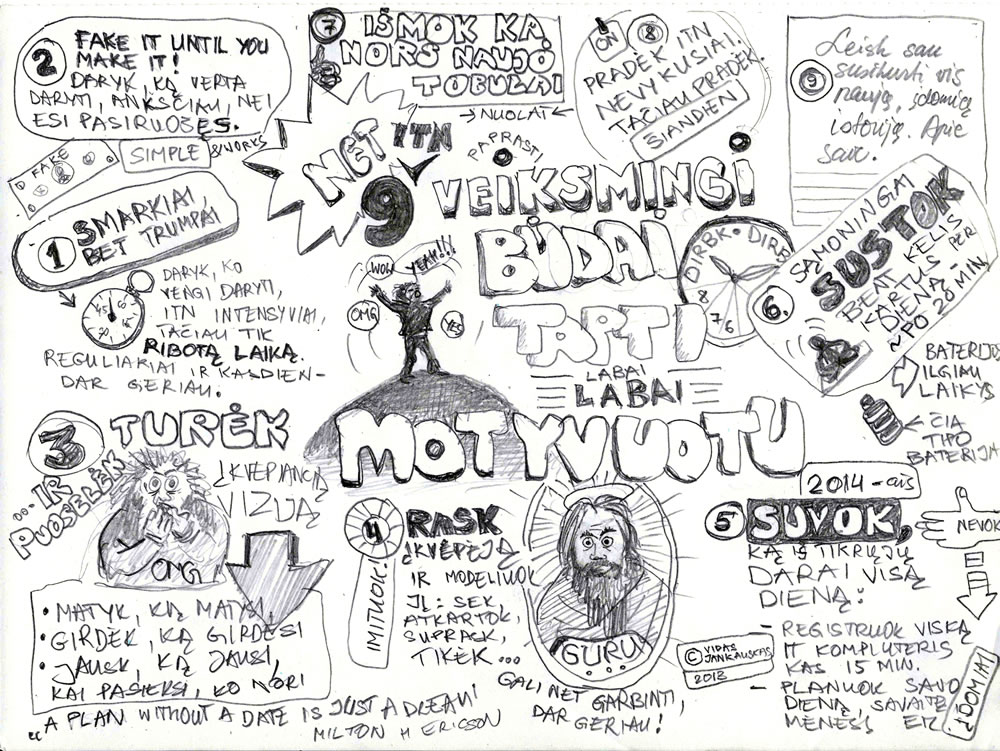 NET
9
ITN
PAPRASTI
VEIKSMINGI
BŪDAI
TAPTI
LABAI
LABAI
MOTYVUOTU
1
SMARKIAI,
BET TRUMPAI
DARYK, KO
VENGI DARYTI,
ITN INTENSYVIAI,
TAČIAU TIK
RIBOTĄ LAIKĄ.
REGULIARIAI IR KASDIEN-
DAR GERIAU.
60
45
30
2
FAKE IT UNTIL YOU
MAKE IT!
DARYK, KĄ VERTA
DARYTI, ANKSČIAU, NEI
ESI PASIRUOŠĘS.
FAKE
SIMPLE
&WORKS
3
TURĖK
... IR
PUOSELĖK
ĮKVEPIANČIĄ
VIZIJĄ
OMG
• MATYK, KĄ MATYSI,
• GIRDĖK, KĄ GIRDĖSI
• JAUSK, KĄ JAUSI,
KAI PASIEKSI, KO NORI
"A PLAN WITHOUT A DATE IS JUST A DREAM
MILTON H ERICSSON
WOW
YEAH!!!
OMG
YES
4
IMITUOK!
RASK
ĮKVĖPĖJĄ
IR MODELIUOK
JĮ: SEK,
ATKARTOK,
SUPRASK,
TIKĖK...
GURU
GALI NET GARBINTI,
DAR GERIAU!
© VIDAS
JANKAUSKAS
2013
2014-AIS
5
SUVOK,
KĄ IŠ TIKRŲJŲ
DARAI VISĄ
DIENĄ:
- REGISTRUOK VISKĄ
IT KOMPIUTERIS
KAS 15 MIN.
- PLANUOK SAVO
DIENĄ, SAVAITĘ,
MĖNESĮ ETC
NEVOK
ĮDOMIAI
6.
SĄMONINGAI
SUSTOK
BENT KELIS
KARTUS PER
DIENĄ
PO 20 MIN.
DIRBK • DIRB
8
7
6
BATERIJOS
ILGIAU
LAIKYS
ČIA
TIPO
BATERIJA
7
IŠMOK KĄ
NORS NAUJO
TOBULAI
NUOLAT
8
ON
PRADĖK ITN
NEVYKUSIAI.
TAČIAU PRADĖK.
ŠIANDIEN
9
Leisk sau
susikurti vis
naują, įdomią
istoriją. Apie
save.